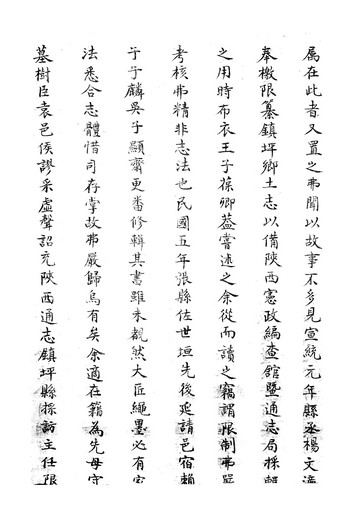 属在此者又置之弗聞以故事不多見宣統元年縣丞楊文
奉檄限纂鎮坪鄉土志以備陝西憲政編查館暨通志局採
之用時布衣王子葆卿葢嘗述之余從而讀之竊謂限制弗
考核弗精非志法也民國五年張縣佐世垣先後延請邑宿賴
子子麟吳子顯齋更番修輯其書雖未覩然大匠繩墨必有
法悉合志體惜司存掌故弗嚴歸烏有矣余適在籍為先母守
墓樹臣袁邑侯謬采虛聲詔充陝西通志鎮坪縣採訪主任限